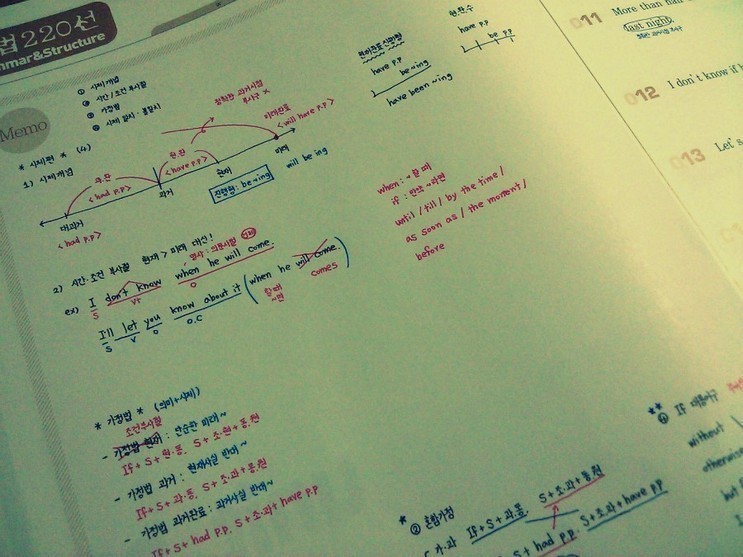 법220선
mmar&Structure
Memo
① 시제개념
② 시간/조건 부사절
③ 가정법
④ 시제 일치·불일치
* 시제편 * (4)
1) 시제개념
정확한 과거시점
부사구 X
미래완료
< will have p.p >
과.완
< had p.p >
현.완
< have p.p >
대과거
< had p.p >
과거
현재
미래
진행형: be ~ing
will be ing
현재완료진행형
have p.p
be ~ing
have been ~ing
현완수
have p.p
be p.p
2) 시간·조건 부사절 현재 > 미래 대신!
명사: 의문사절
ex) I don't know when he will come.
S Vt O
I'll let you know about it (when he will come.)
S V O O.C
할 때
~면
comes
when: ~할 때
if: 만약 ~라면
until / till / by the time /
as soon as / the moment /
before
* 가정법 * (의미+시제)
조건부사절
- 가정법 현재: 단순한 미래~
If + S + 현.동, S + 조.현 + 동.원
- 가정법 과거: 현재사실 반대~
If + S + 과.동, S + 조.과 + 동.원
- 가정법 과거완료: 과거사실 반대~
If + S + had p.p, S + 조.과 + have p.p
* ② 혼합가정
If + S + 과.동, S + 조.과 + 동.원
had p.p. S + 조.과 + have p.p
** ④ If 대용어구
without
otherwise
but
011 More than half
last night.
012 I don't know if h
013 Let's